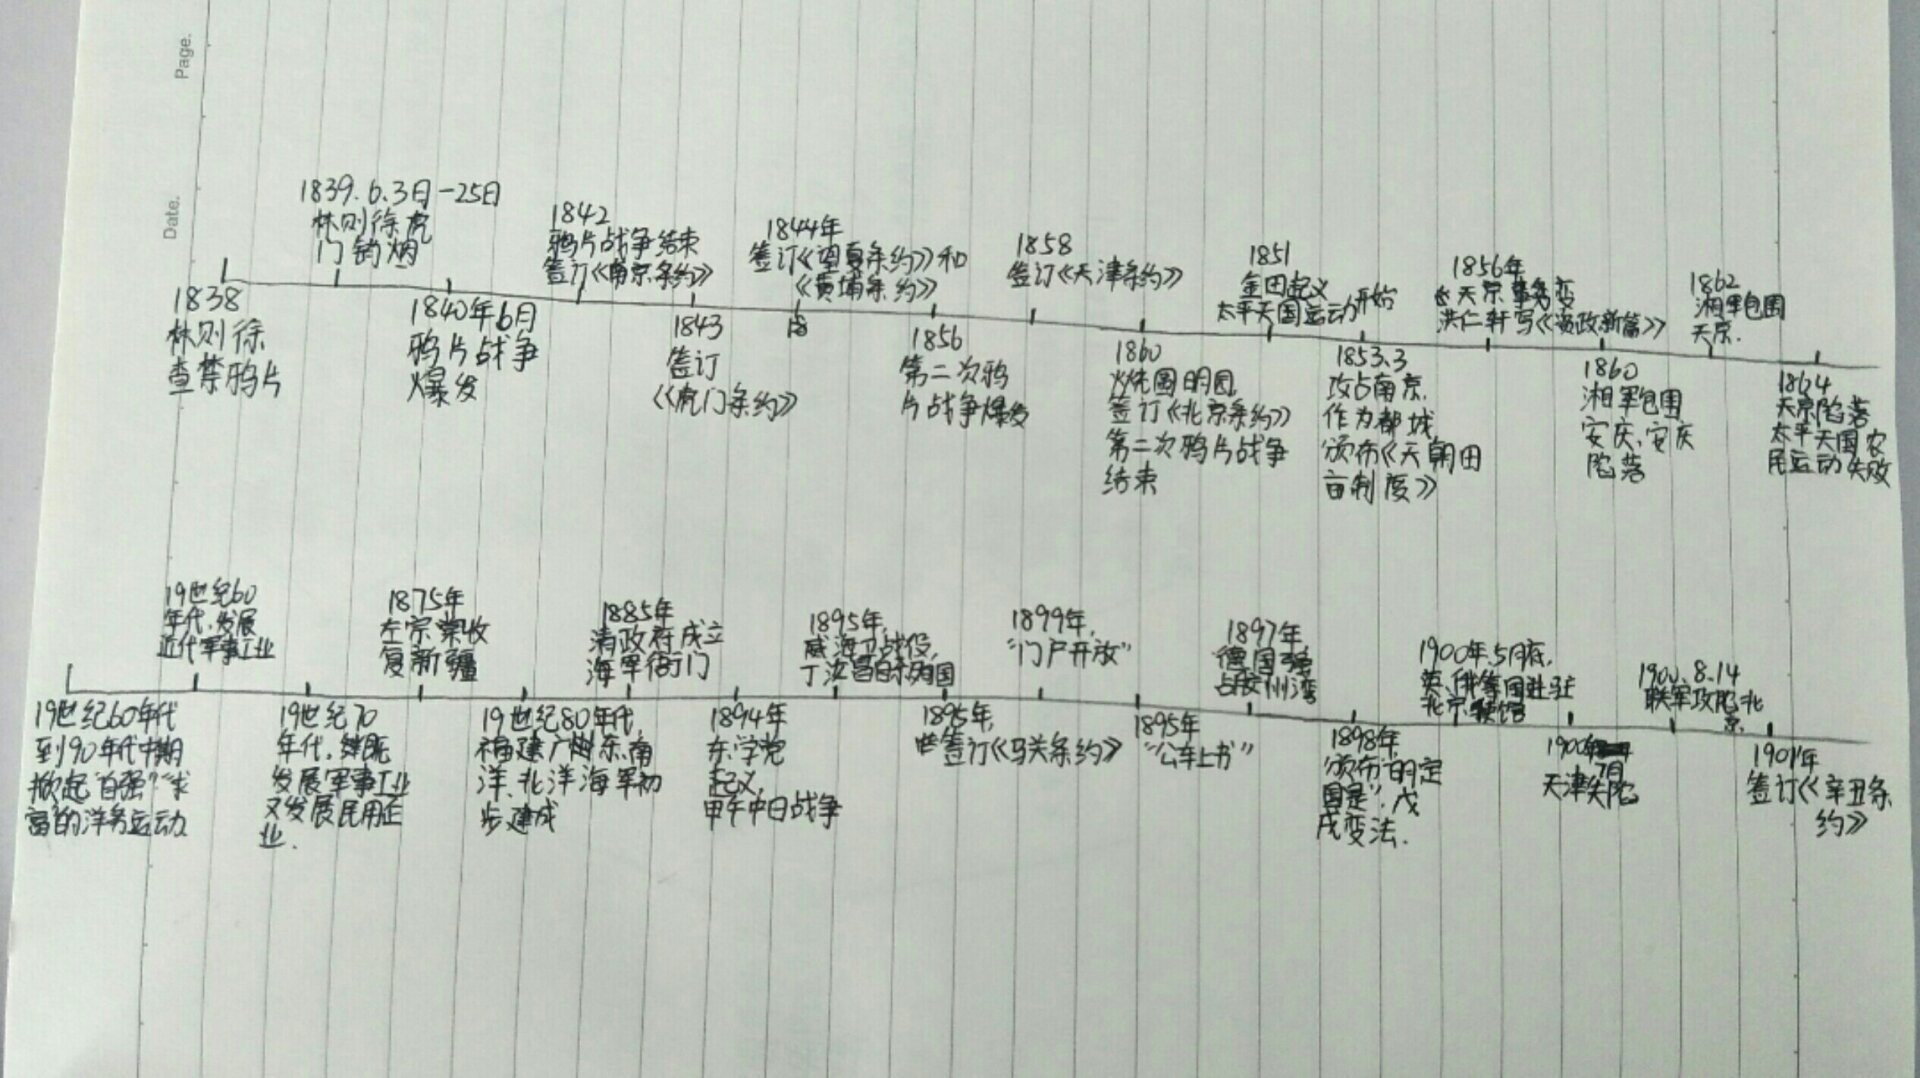 Page.
Date.
1838
林则徐
查禁鸦片
1839.6.3日-25日
林则徐虎
门销烟
1840年6月
鸦片战争
爆发
1842
鸦片战争结束
签订《南京条约》
1843
签订
《虎门条约》
1844年
签订《望夏条约》和
《黄埔条约》
18
1856
第二次鸦
片战争爆发
1858
签订《天津条约》
1860
火烧圆明园,
签订《北京条约》
第二次鸦片战争
结束
1851
金田起义
太平天国运动开始
1853.3
攻占南京,
作为都城,
颁布《天朝田
亩制度》
1856年
天京事变
洪仁轩写《资政新篇》
1860
湘军包围
安庆,安庆
陷落
1862
湘军包围
天京.
1864
天京陷落
太平天国农
民运动失败
19世纪60年代
到90年代中期
掀起"自强""求
富"的洋务运动
19世纪60
年代,发展
近代军事工业
19世纪70
年代,继既
发展军事工业
又发展民用企
业.
1875年
左宗棠收
复新疆
19世纪80年代,
福建,广东,南
洋、北洋海军初
步建成
1885年
清政府成立
海军衙门
1894年
东学党
起义,
甲午中日战争
1895年,
威海卫战役,
丁汝昌自杀殉国
1895年,
签订《马关条约》
1899年,
"门户开放"
1895年
"公车上书"
1897年
德国强
占胶州湾
1898年,
颁布"明定
国是",戊
戌变法.
1900年.5月底,
英、俄等国进驻
北京使馆
1900年
7月
天津失陷
1900.8.14
联军攻陷北
京.
1901年
签订《辛丑条
约》